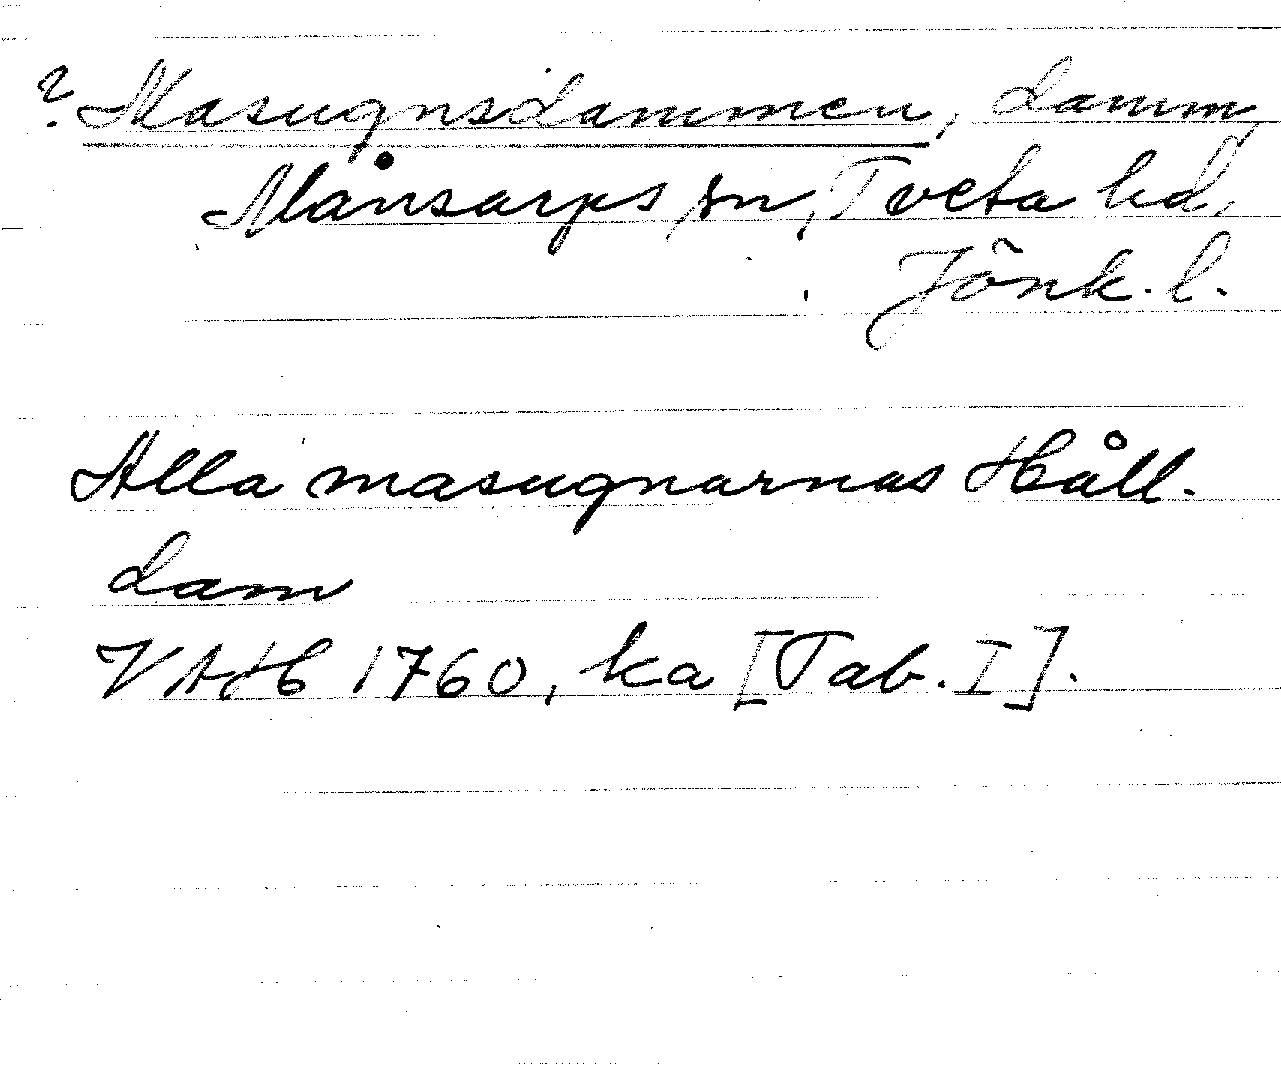 ? Masugnsdammen, damm,
Månsarps sn, Tveta hd,
Jönk. l.
Alla masugnarnas Håll-
dam
VAH 1760, ka [Tab. I].